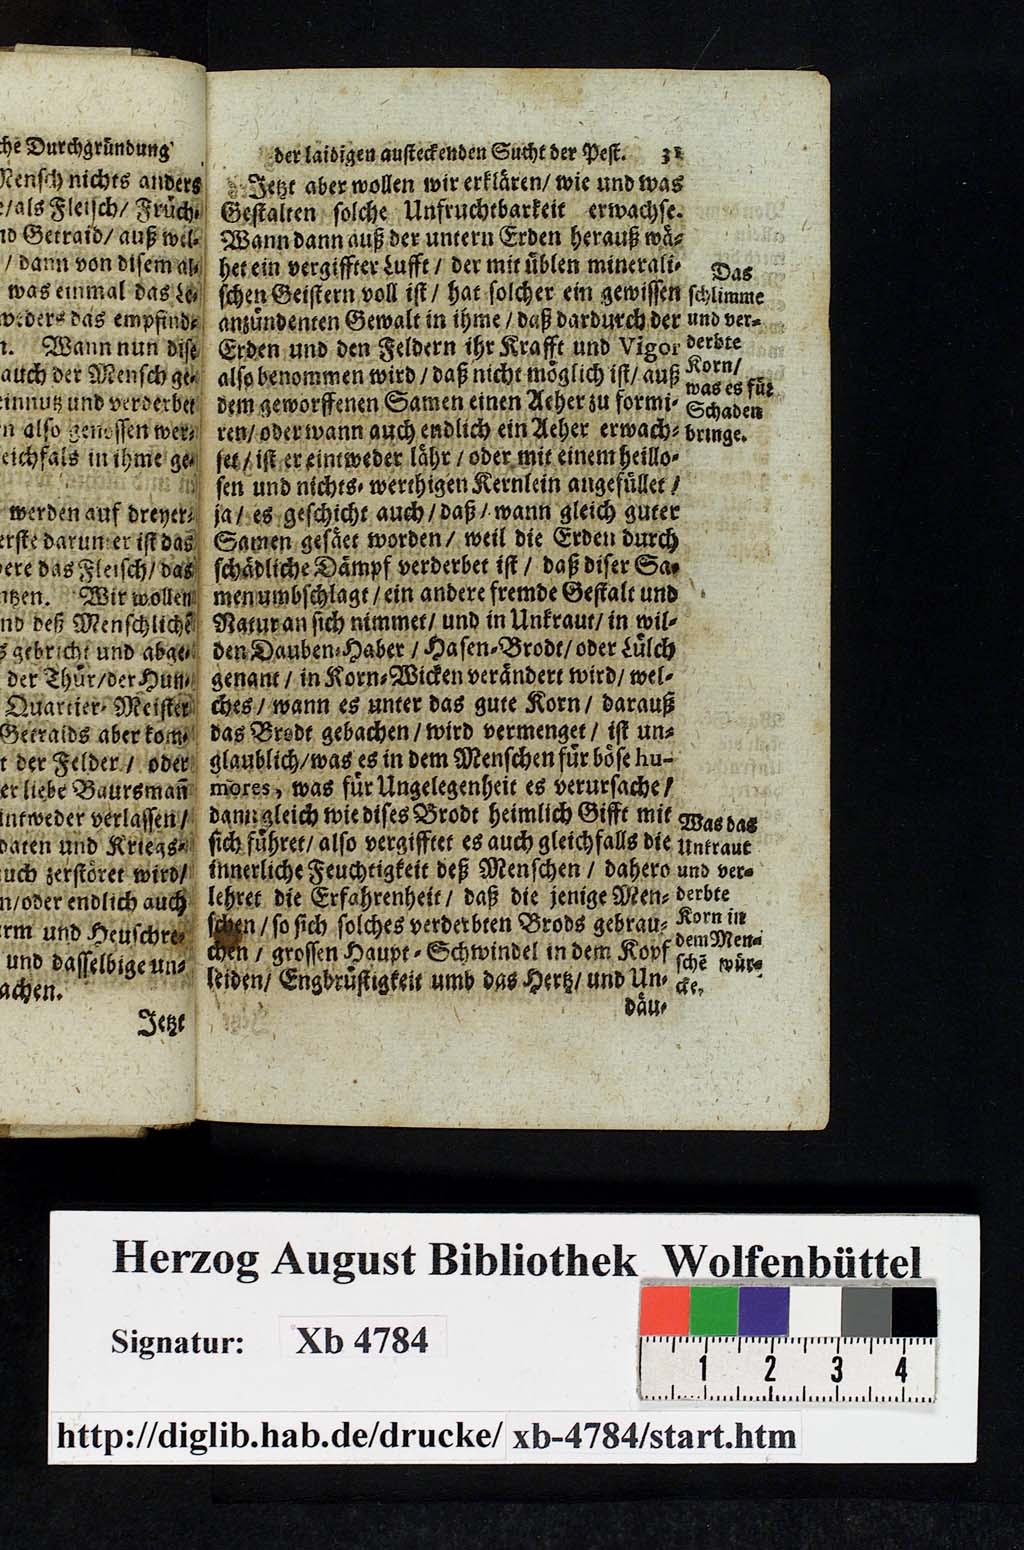 che Durchgründung
Mensch nichts anders
e/als Fleisch/ Früch-
nd Getraid/ auß wel-
/ dann von disem al-
was einmal das Le-
weder- das empfind-
n. Wann nun dise
auch der Mensch ge-
einnutz und verderbet
n also genossen wer-
eichfals in ihme ge-
werden auf dreyer-
erste darunter ist das
dere das Fleisch/ das
ntzen. Wir wollen
nd deß Menschlichē
s gebricht und abge-
der Thür/der Hun-
Quartier- Meister
Getraids aber kom-
t der Felder / oder
er liebe Baursmañ
intweder verlassen /
daten und Kriegs-
uch zerstöret wird/
n/oder endlich auch
urm und Heuschre-
und dasselbige un-
achen.
Jetzt
der laidigen ansteckenden Sucht der Pest. 31
Jetzt aber wollen wir erklären/ wie und was
Gestalten solche Unfruchtbarkeit erwachse.
Wann dann auß der untern Erden herauß wä-
het ein vergiffter Lufft / der mit üblen minerali-
schen Geistern voll ist / hat solcher ein gewissen
anzündenten Gewalt in ihme / daß dardurch der
Erden und den Feldern ihr Krafft und Vigor
also benommen wird / daß nicht möglich ist / auß
dem geworffenen Samen einen Aeher zu formi-
ren/ oder wann auch endlich ein Aeher erwach-
set / ist er eintweder lähr / oder mit einem heillo-
sen und nichts- werthigen Kernlein angefüllet /
ja / es geschicht auch / daß / wann gleich guter
Samen gesäet worden / weil die Erden durch
schädliche Dämpf verderbet ist / daß diser Sa-
men umbschlagt / ein andere fremde Gestalt und
Natur an sich nimmet / und in Unkraut / in wil-
den Dauben-Haber / Hasen-Brodt / oder Lülch
genant / in Korn-Wicken verändert wird / wel-
ches / wann es unter das gute Korn / darauß
das Brodt gebachen / wird vermenget / ist un-
glaublich/was es in dem Menschen für böse hu-
mores, was für Ungelegenheit es verursache /
dann gleich wie dises Brodt heimlich Gifft mit
sich führet / also vergifftet es auch gleichfalls die
innerliche Feuchtigkeit deß Menschen / dahero
lehret die Erfahrenheit / daß die jenige Men-
schen / so sich solches verderbten Brods gebrau-
chen / grossen Haupt- Schwindel in dem Kopf
leiden / Engbrüstigkeit umb das Hertz / und Un-
däu-
Das
schlimme
und ver-
derbte
Korn/
was es für
Schaden
bringe.
Was das
Unkraut
und ver-
derbte
Korn in
dem Men-
schē wür-
cke.
Herzog August Bibliothek Wolfenbüttel
Signatur: Xb 4784
1 2 3 4
http://diglib.hab.de/drucke/ xb-4784/start.htm